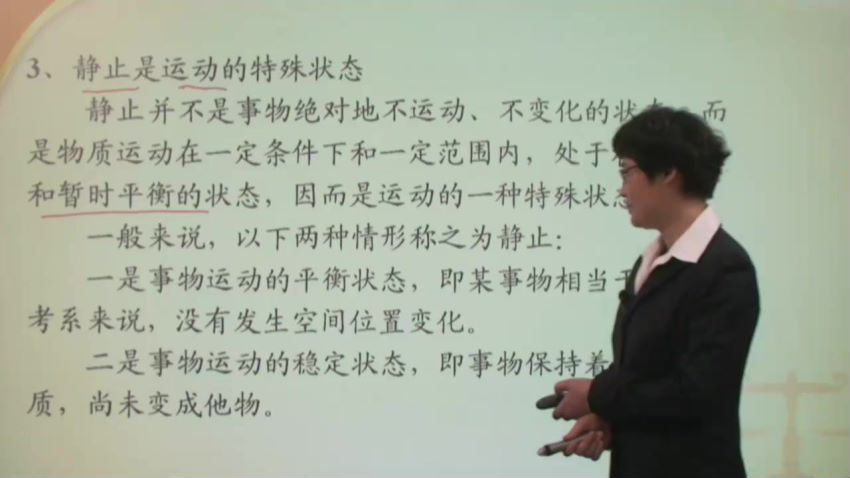 3、静止是运动的特殊状态
静止并不是事物绝对地不运动、不变化的状态，而
是物质运动在一定条件下和一定范围内，处于
和暂时平衡的状态，因而是运动的一种特殊状态
一般来说，以下两种情形称之为静止：
一是事物运动的平衡状态，即某事物相当于
考系来说，没有发生空间位置变化。
二是事物运动的稳定状态，即事物保持着
质，尚未变成他物。